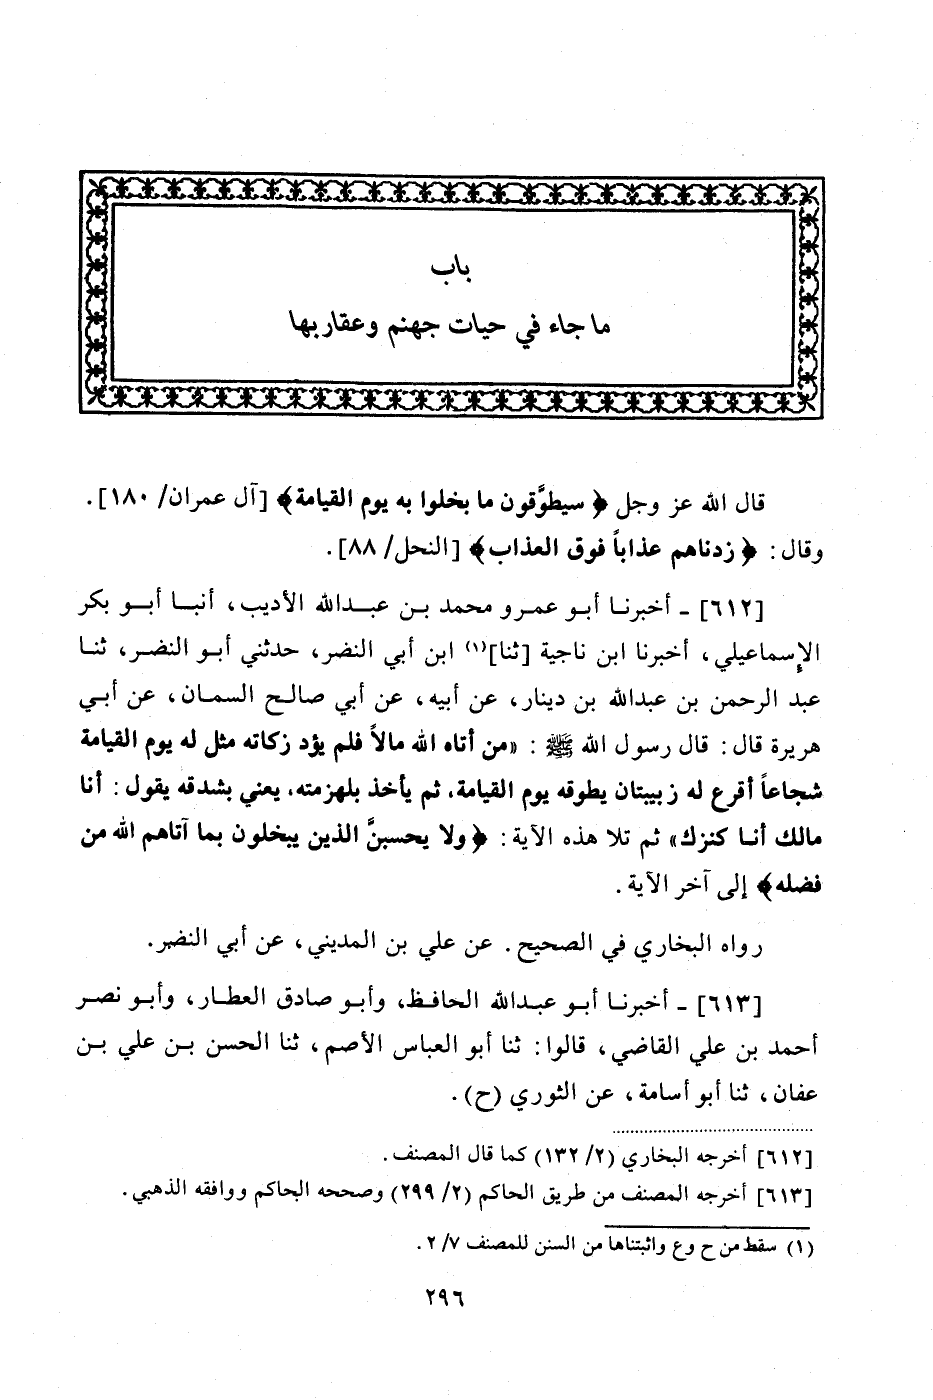 باب
ما جاء في حيات جهنم وعقاربها
قال الله عز وجل ﴿ سيطوَّقون ما بخلوا به يوم القيامة﴾ [آل عمران/ ١٨٠].
وقال: ﴿ زدناهم عذاباً فوق العذاب﴾ [النحل/ ٨٨].
[٦١٢] ـ أخبرنا أبو عمرو محمد بن عبدالله الأديب، أنبا أبو بكر
الإسماعيلي، أخبرنا ابن ناجية [ثنا](١) ابن أبي النضر، حدثني أبو النضر، ثنا
عبد الرحمن بن عبدالله بن دينار، عن أبيه، عن أبي صالح السمان، عن أبي
هريرة قال: قال رسول الله ﷺ: «من أتاه الله مالاً فلم يؤد زكاته مثل له يوم القيامة
شجاعاً أقرع له زبيبتان يطوقه يوم القيامة، ثم يأخذ بلهزمته، يعني بشدقه يقول: أنا
مالك أنا كنزك» ثم تلا هذه الآية: ﴿ولا يحسبنَّ الذين يبخلون بما آتاهم الله من
فضله﴾ إلى آخر الآية.
رواه البخاري في الصحيح. عن علي بن المديني، عن أبي النضر.
[٦١٣] ـ أخبرنا أبو عبدالله الحافظ، وأبو صادق العطار، وأبو نصر
أحمد بن علي القاضي، قالوا: ثنا أبو العباس الأصم، ثنا الحسن بن علي بن
عفان، ثنا أبو أسامة، عن الثوري (ح).
[٦١٢] أخرجه البخاري (٢/ ١٣٢) كما قال المصنف.
[٦١٣] أخرجه المصنف من طريق الحاكم (٢/ ٢٩٩) وصححه الحاكم ووافقه الذهبي.
(١) سقط من ح وع واثبتناها من السنن للمصنف ٧/ ٢.
٢٩٦